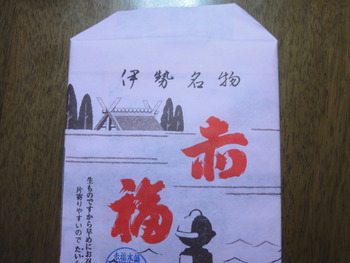 伊勢名物
赤福
生ものですから早めにお召
片寄りやすいのでたいら